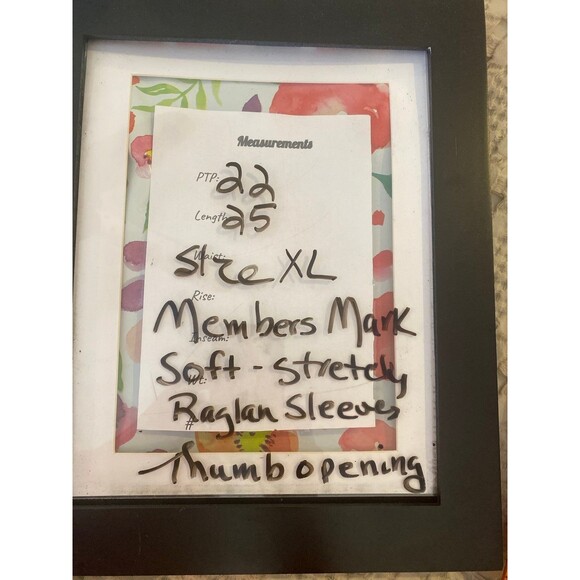 Measurements
PTP: 22
Length 25
Waist:
Size XL
Rise:
Members Mark
Inseam:
Soft - Stretchy
Wt:
Raglan Sleeves
#
Thumb opening